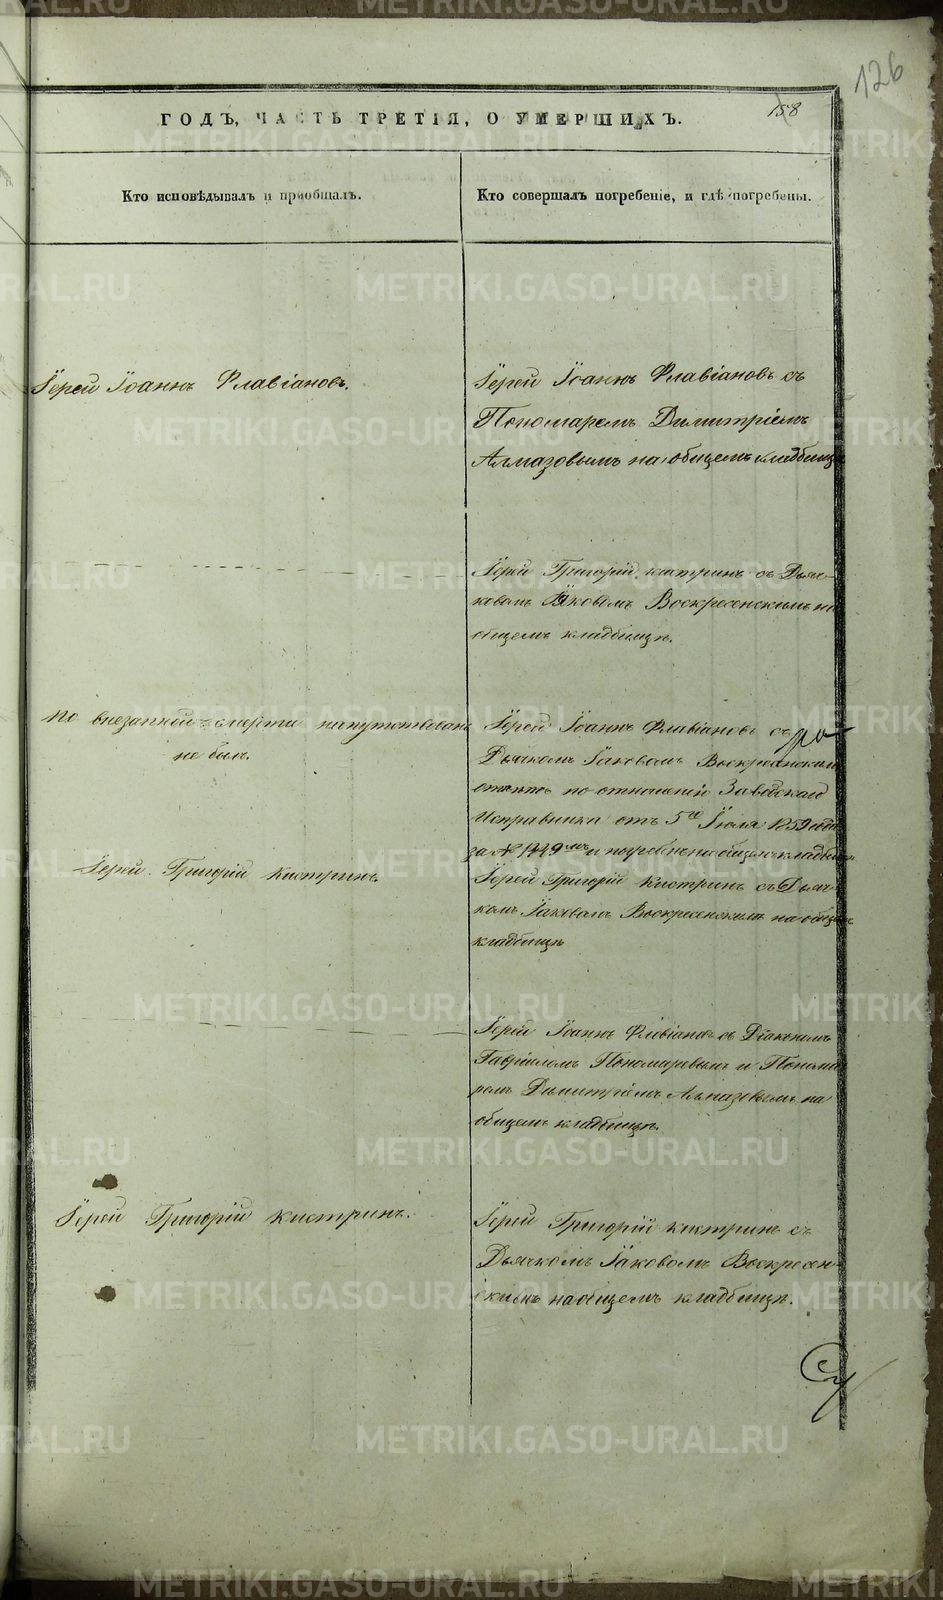 126
158
ГОДЪ, ЧАСТЬ ТРЕТІЯ, О УМЕРШИХЪ.
Кто исповѣдывалъ и пріобщалъ.
Кто совершалъ погребеніе, и гдѣ погребены.
Іерей Іоаннъ Флавіановъ.
Іерей Іоаннъ Флавіановъ съ
Пономаремъ Димитріемъ
Алмазовымъ на общемъ кладбищѣ
Іерей Григорій Кистринъ съ Дьяч-
комъ Іяковомъ Воскресенскимъ на
общемъ кладбищѣ.
по внезапной смерти напутствованъ
не былъ.
Іерей Іоаннъ Флавіановъ съ
Дьячкомъ Іаковомъ Воскресенскимъ
по отношенію Заводскаго
Исправника отъ 5го Іюля 1859 года
за № 1449мъ и погребенъ на общемъ кладбищѣ
Іерей Григорій Кистринъ.
Іерей Григорій Кистринъ съ Дьяч-
комъ Іаковомъ Воскресенскимъ на общемъ
кладбищѣ
Іерей Іоаннъ Флавіановъ съ Діакономъ
Гавріиломъ Пономаревымъ и Понома
ремъ Димитріемъ Алмазовымъ на
общемъ кладбищѣ.
Іерей Григорій Кистринъ.
Іерей Григорій Кистринъ съ
Дьячкомъ Іаковомъ Воскресен-
скимъ на общемъ кладбищѣ.
METRIKI.GASO-URAL.RU